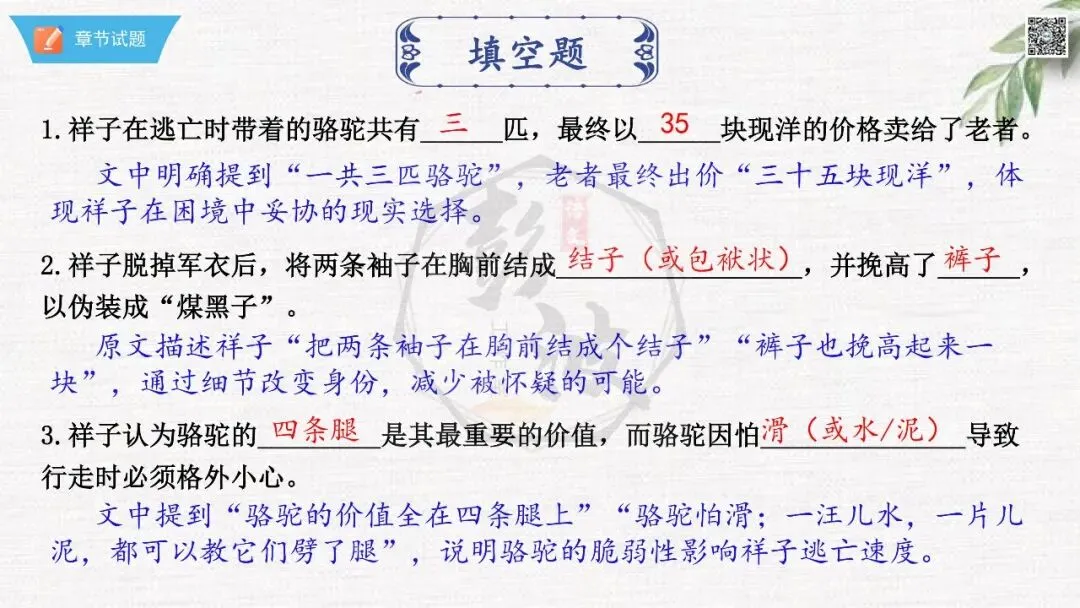 章节试题
填空题
1.祥子在逃亡时带着的骆驼共有 三 匹，最终以 35 块现洋的价格卖给了老者。
文中明确提到“一共三匹骆驼”，老者最终出价“三十五块现洋”，体
现祥子在困境中妥协的现实选择。
2.祥子脱掉军衣后，将两条袖子在胸前结成 结子（或包袱状） ，并挽高了 裤子 ，
以伪装成“煤黑子”。
原文描述祥子“把两条袖子在胸前结成个结子”“裤子也挽高起来一
块”，通过细节改变身份，减少被怀疑的可能。
3.祥子认为骆驼的 四条腿 是其最重要的价值，而骆驼因怕 滑（或水/泥） 导致
行走时必须格外小心。
文中提到“骆驼的价值全在四条腿上”“骆驼怕滑；一汪儿水，一片儿
泥，都可以教它们劈了腿”，说明骆驼的脆弱性影响祥子逃亡速度。